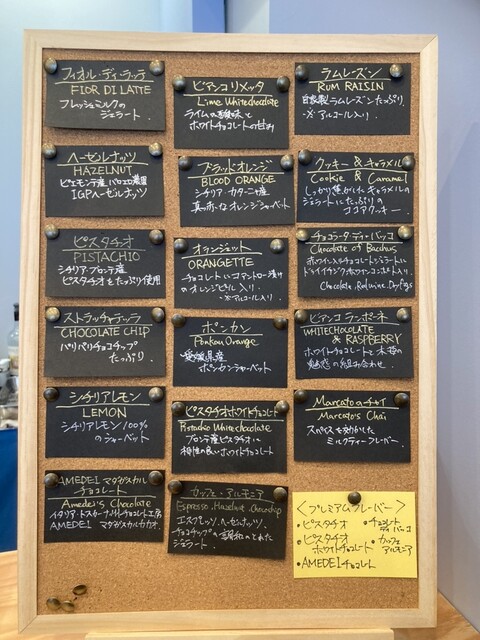 フィオル・ディ・ラッテ
FIOR DI LATTE
フレッシュミルクの
ジェラート.
ヘーゼルナッツ
HAZELNUT
ピエモンテ産
IGPヘーゼルナッツ
ピスタチオ
PISTACHIO
シチリア・ブロンテ産
ピスタチオを使用
ストラッチャテッラ
CHOCOLATE CHIP
パリパリチョコチップ
たっぷり.
シチリアレモン
LEMON
シチリアレモン100%
のシャーベット
AMEDEI マダガスカル
チョコレート
Amedei's Chocolate
イタリア、トスカーナ チョコレート工房
AMEDEI マダガスカルカカオ.
ビアンコリメッタ
Lime Whitechocolate
ライムの酸味と
ホワイトチョコレートの甘み
ブラッドオレンジ
BLOOD ORANGE
シチリア・カターニャ産
真っ赤なオレンジシャーベット
オランジェット
ORANGETTE
チョコレートにコアントロー漬け
のオレンジピール入り.
※アルコール入り.
ポンカン
Ponkan Orange
愛媛県産
ポンカンシャーベット
ピスタチオホワイトチョコレート
Pistachio Whitechocolate
ブロンテ産ピスタチオに
相性の良いホワイトチョコレート
カッフェ・アルモニア
Espresso, Hazelnut, Chocochip
エスプレッソ、ヘーゼルナッツ、
チョコチップの調和のとれた
ジェラート.
ラムレーズン
RUM RAISIN
自家製ラムレーズンたっぷり.
※アルコール入り.
クッキー&キャラメル
Cookie & Caramel
しっかり焦がしたキャラメルの
ジェラートにたっぷりの
ココアクッキー.
チョコラータ・ディ・バッコ
Chocolate of Bacchus
ホワイン入りチョコレートジェラートに
ドライイチジク入り.
Chocolate, Redwine, Dryfigs
ビアンコ ランポーネ
WHITECHOCOLATE
& RASPBERRY
ホワイトチョコレートと木苺の
魅惑の組み合わせ.
Marcatoのチャイ
Marcato's Chai
スパイスを効かした
ミルクティーフレーバー.
<プレミアムフレーバー>
・ピスタチオ
・ピスタチオ
ホワイトチョコレート
・AMEDEIチョコレート
・チョコレート
ディバッコ
・カッフェ
アルモニア